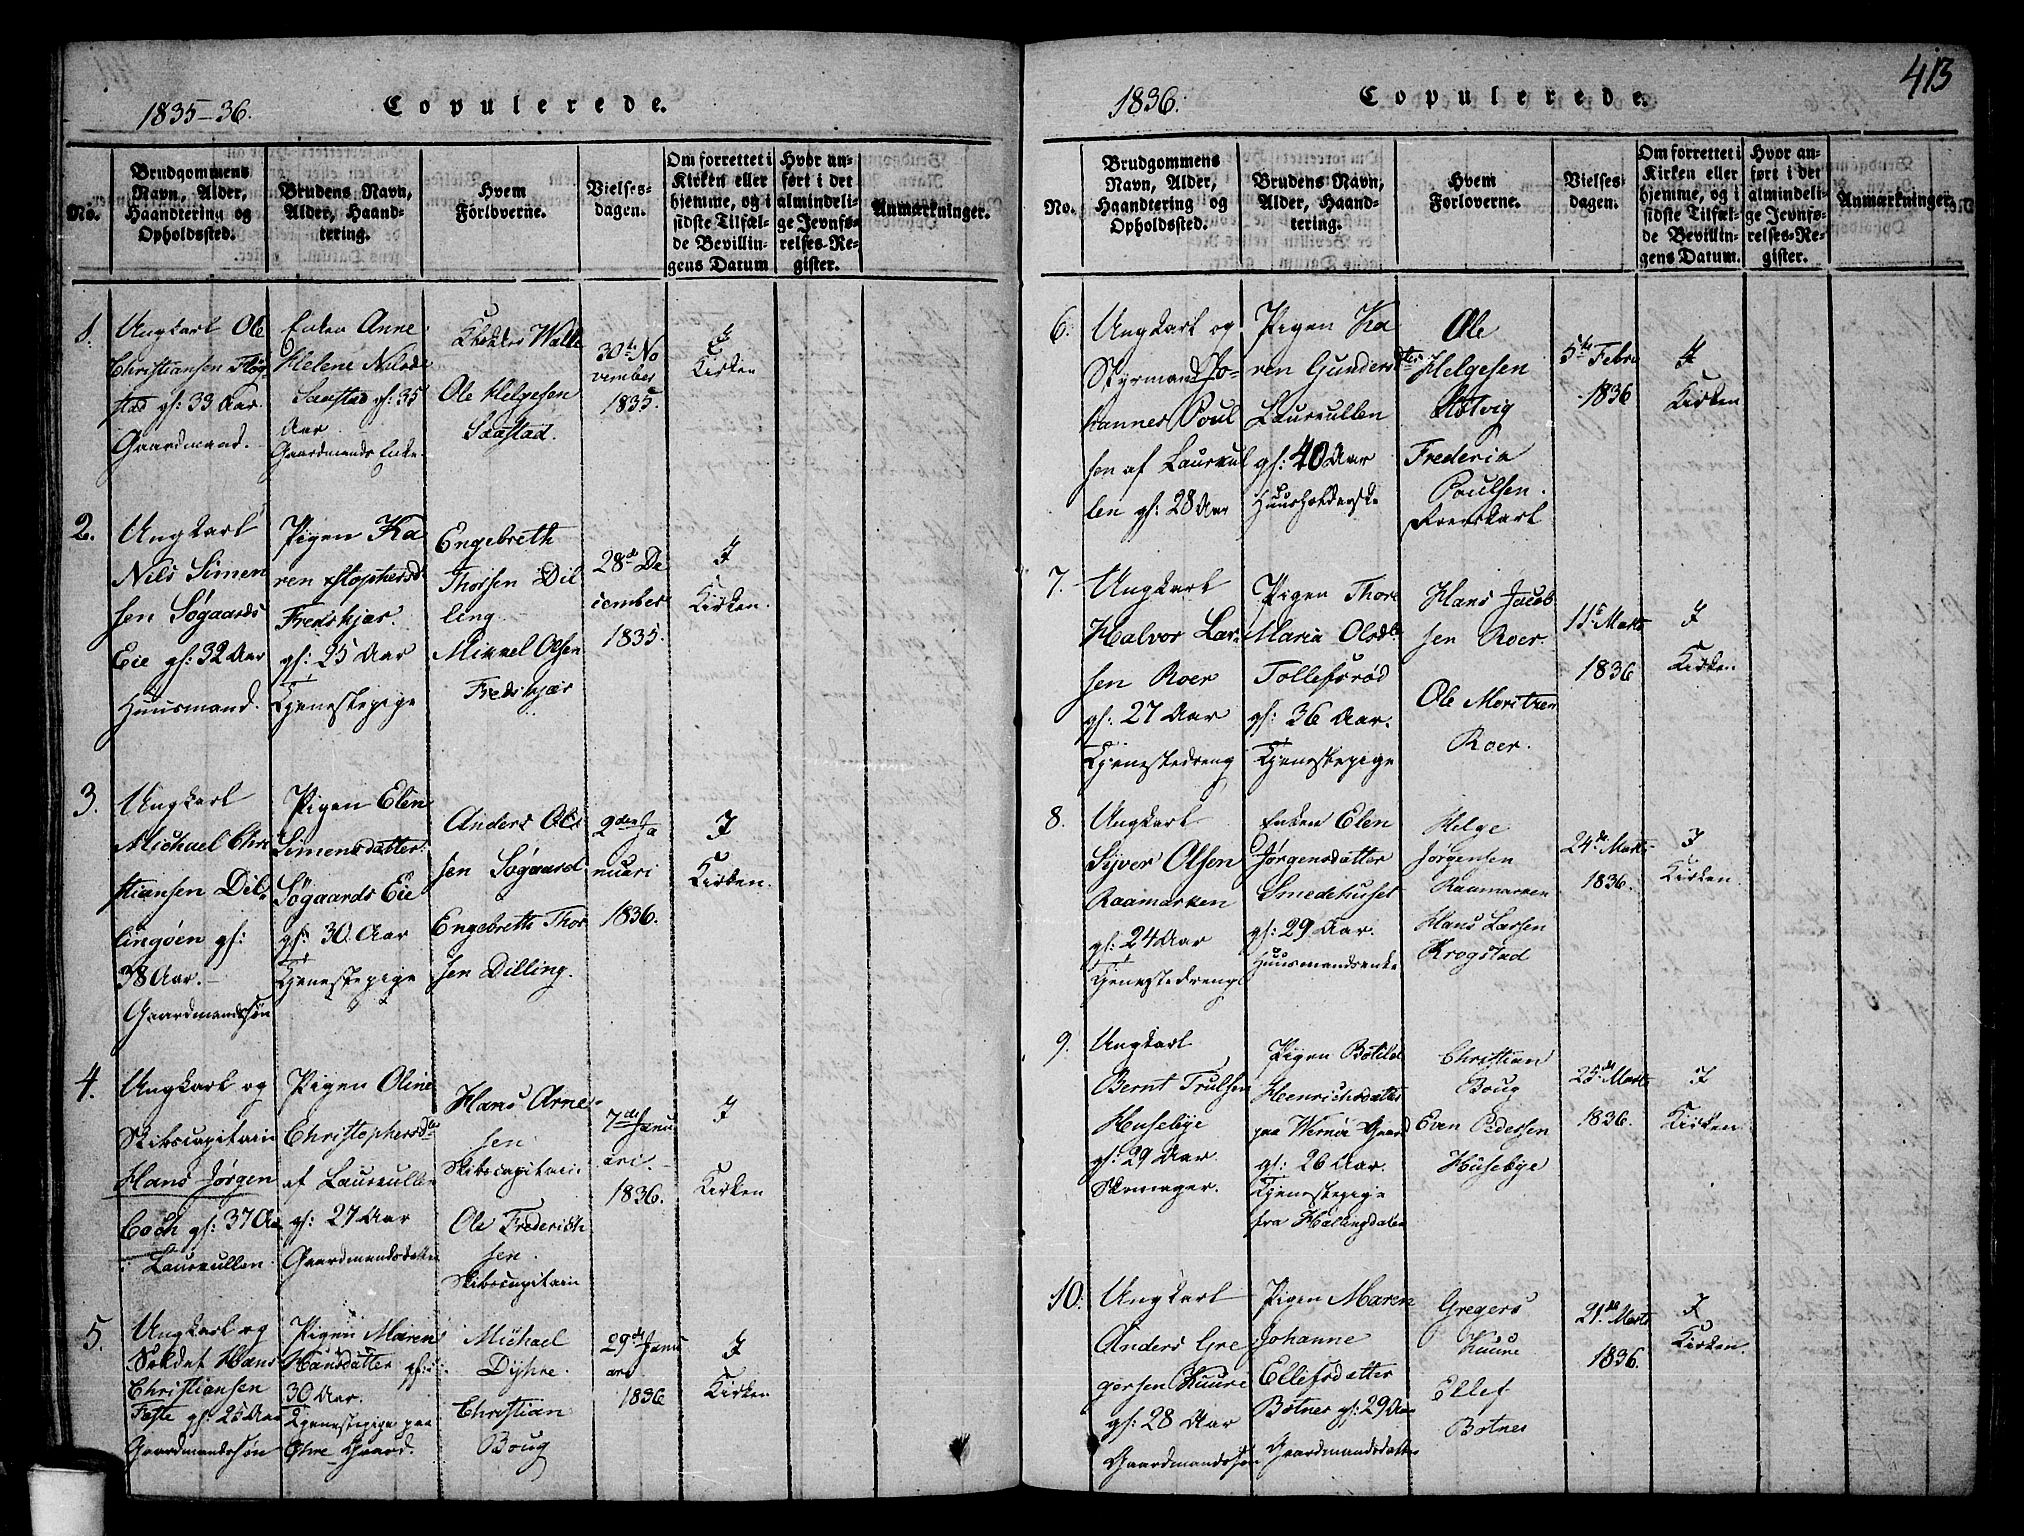 1835-36.
Copulerede.
No.
Brudgommens
Navn, Alder,
Haandtering og
Opholdssted.
Brudens Navn,
Alder, Haand-
tering.
Hvem
Forloverne.
Vielses-
dagen.
Om forrettet i
Kirken eller
hjemme, og i
sidste Tilfæl-
de Bevillin-
gens Datum
Hvor an-
ført i det
almindeli-
ge Jevnfø-
relses-Re-
gister.
Anmærkninger.
1.
Ungkarl Ole
Christiansen
stad gf: 39 Aar.
Gaardmand.
Enken Anne
Helene Nilsd
Saastad gf: 35
Aar
Gaardmands Enke.
Walle
Ole Helgesen
Saastad.
30te No
vember
1835.
I
Kirken
2.
Ungkarl
Nils Simen
sen Søgaards
Eie gf: 32 Aar
Huusmand.
Pigen Ka
ren Xstophersd
Fredskjær.
gf: 25 Aar
Tjenestepige
Engebreth
Thorsen Dil
ling.
Mikkel Olsen
Fredskjær
28de De
cember
1835.
I
Kirken.
3.
Ungkarl
Michael Chri
stiansen Dil-
lingøen gf:
38 Aar.
Gaardmandssøn
Pigen Elen
Simensdatter
Søgaards Eie
gf: 30 Aar
Tjenestepige
Anders Ol
sen Søgaard
Engebreth Thor
sen Dilling.
9den Ja
nuari
1836.
I
Kirken.
4.
Ungkarl og
Skibscapitain
Hans Jørgen
Coch gf: 37 Aar
Laurkullen
Pigen Oline
Christophersd
af Laurkullen
gf: 27 Aar
Gaardmandsdatter
Hans Arne-
sen
Skibscapitain
Ole Frederich
sen.
Skibscapitain
7de Janu
ari.
1836.
I
Kirken
5.
Ungkarl og
Soldat Hans
Christiansen
Feste gf: 25 Aar
Gaardmandssøn
Pigen Maren
Hansdatter gf:
30 Aar.
Tjenestepige paa
Øhre Gaard.
Michael
Dyhre.
Christian
Boug
29de Janu
ari
1836
I
Kirken
1836.
Copulerede.
413
No.
Brudgommens
Navn, Alder,
Haandtering og
Opholdssted.
Brudens Navn,
Alder, Haand-
tering.
Hvem
Forloverne.
Vielses-
dagen.
Om forrettet i
Kirken eller
hjemme, og i
sidste Tilfæl-
de Bevillin-
gens Datum.
Hvor an-
ført i det
almindeli-
ge Jevnfø-
relses-Re-
gister.
Anmærkninger.
6.
Ungkarl og
Styrmand Jo-
hannes Poul
sen af Laurkul
len gf: 28 Aar
Pigen Ka
ren Gundersdtter
Laurkullen
gf: 40 Aar
Huusholderske
Ole
Helgesen
Kolvig
Frederich
Poulsen.
5te Febru
1836
I
Kirken
7.
Ungkarl
Halvor Lar-
sen Roer
gf: 27 Aar
Tjenestedreng
Pigen Thore
Maria Olsdtr
Tollefsrød
gf: 36 Aar.
Tjenestepige
Hans Jacob
sen Roer.
Ole Moritzen
Roer.
11te Marts
1836
I
Kirken
8.
Ungkarl
Syver Olsen
Raamarken
gf: 24 Aar
Tjenestedreng
Enken Elen
Jørgensdatter
Smedehuset
gf: 29 Aar.
Huusmandsenke
Helge
Jørgensen
Raamarken
Hans Larsen
Krogstad
24de Marts
1836.
I
Kirken
9.
Ungkarl
Bernt Trulsen
Husebye
gf: 29 Aar.
Skomager.
Pigen Botilde
Henrichsdatter
paa Wernøe Gaard
gf: 26 Aar.
Tjenestepige
fra Hallingdalen
Christian
Boug
Even Pedersen
Husebye
25de Marts
1836.
I
Kirken
10.
Ungkarl
Anders Gre
gersen Kuure
gf: 28 Aar
Gaardmandssøn
Pigen Maren
Johanne
Ellefsdatter
Botner gf: 29 Aar
Gaardmandsdatter
Gregers
Kuure
Ellef
Botner
21de Marts
1836.
I
Kirken.